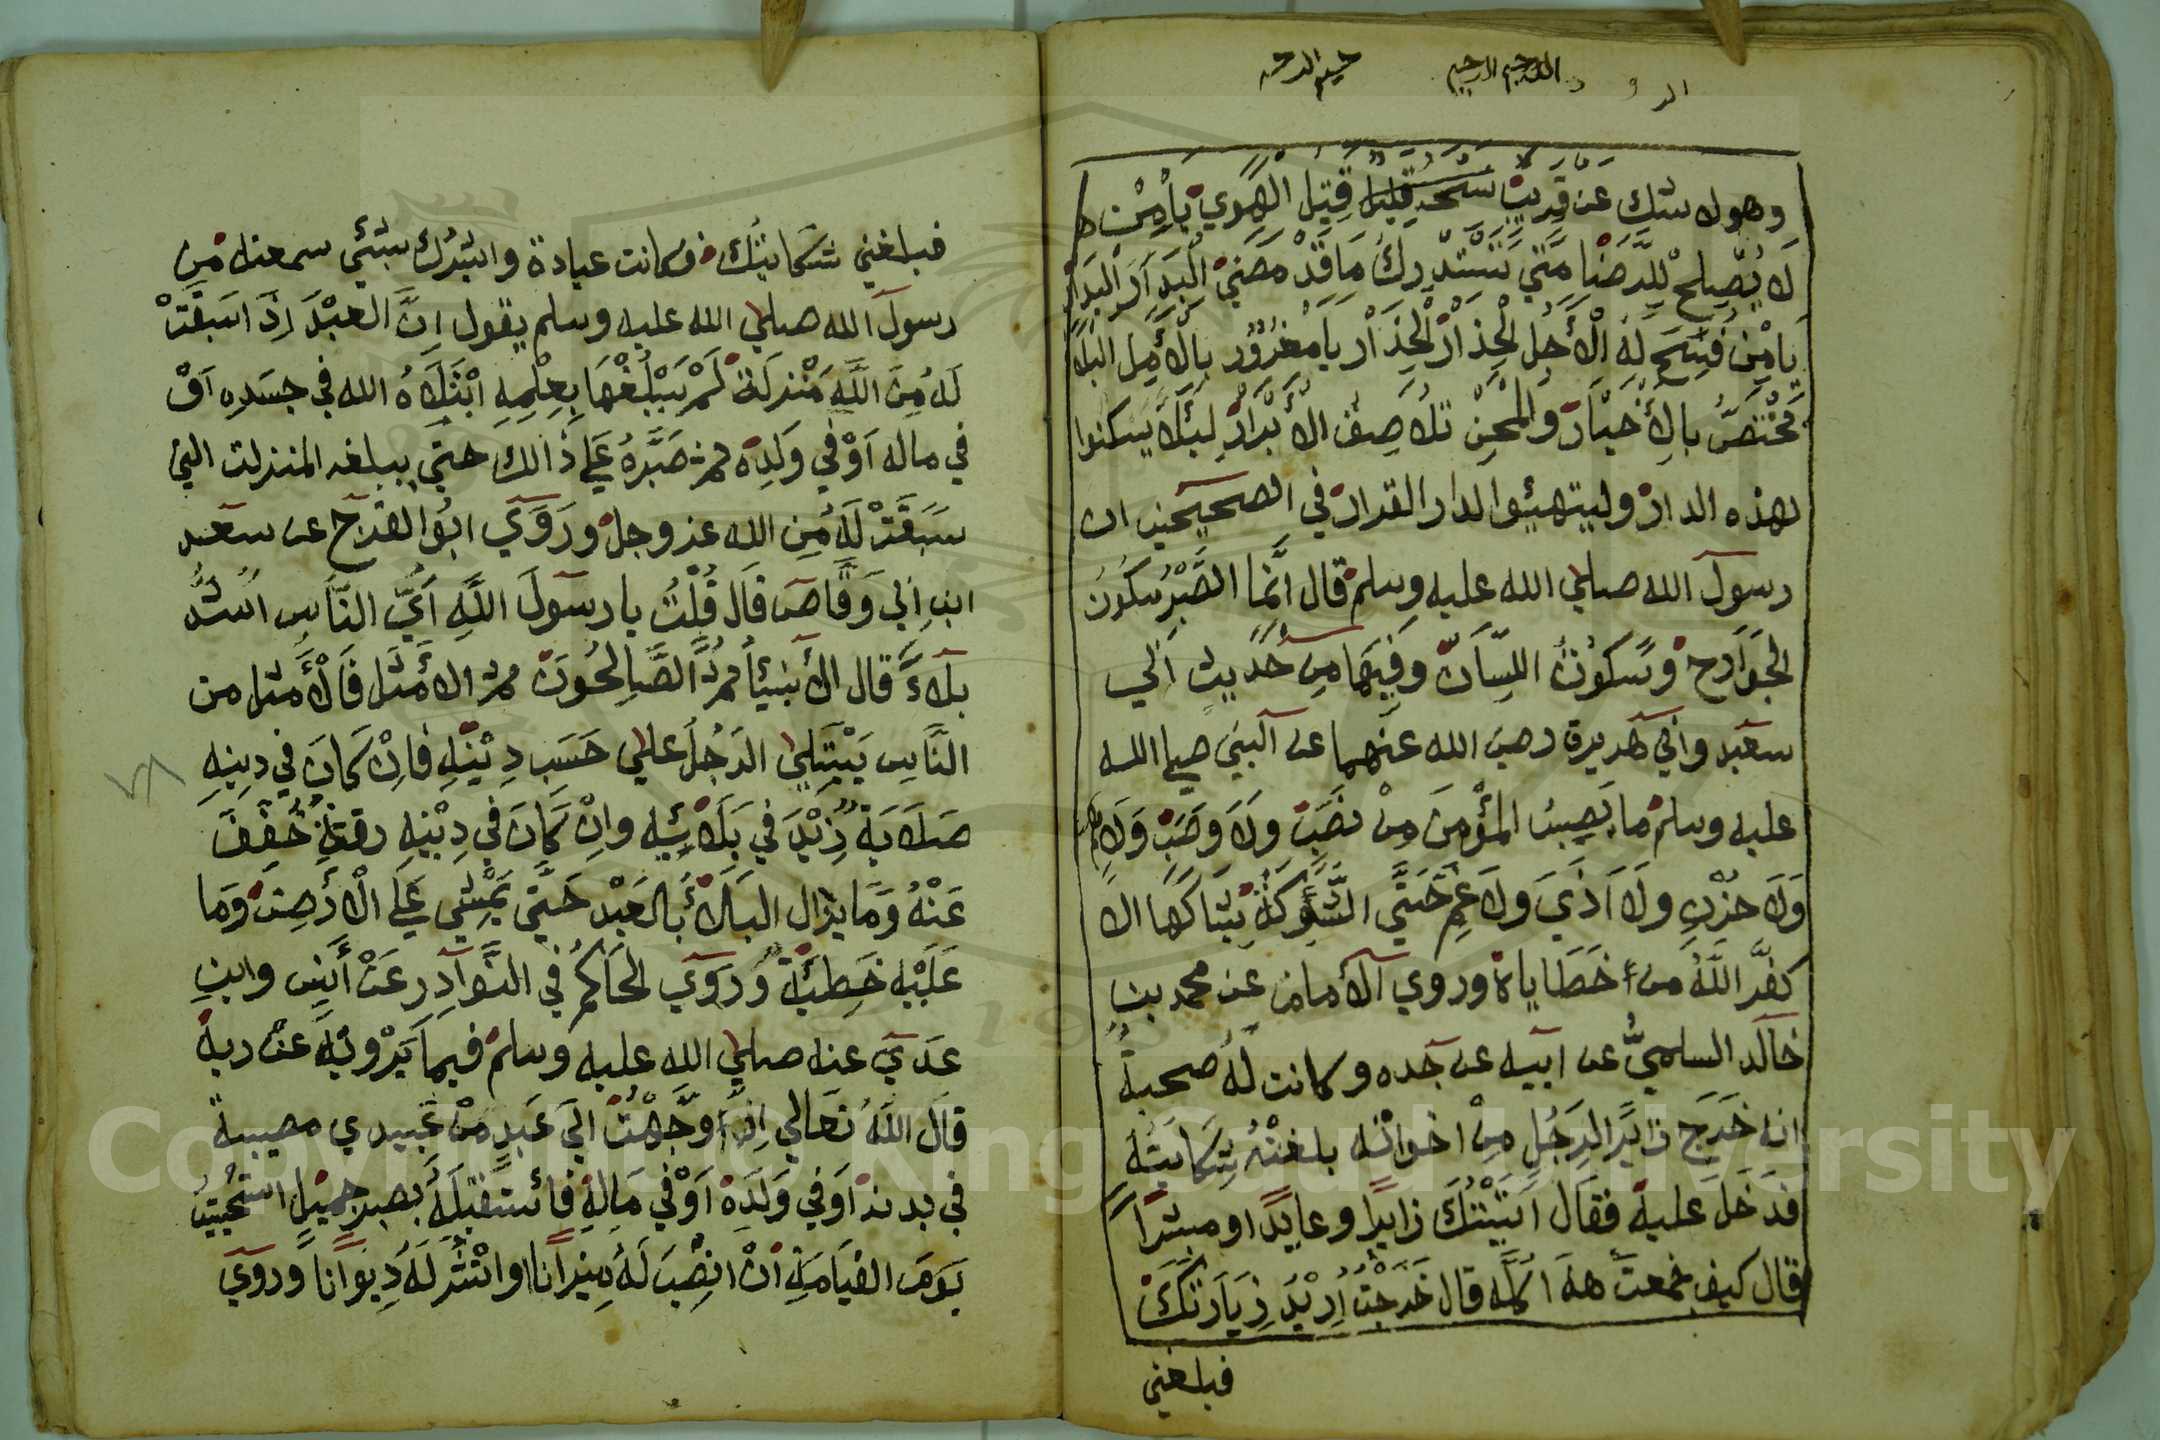 وهوله شك عن قريب سحر قليل قتيل الهوي يامن
لا يصلح للرضا متي تستدرك ما قد مضي البدار البدار
يامن فسح له الاجل الحذار الحذار يا مغرور بالامل البلا
تختص بالاخيار والمحن تلاصف الابرار ليلا يسكنوا
لهذه الدار وليتهيئوا لدار القرار في الصحيحين ان
رسول الله صلي الله عليه وسلم قال انما الصبر سكون
الجوارح وسكون اللسان وفيهما من حديث ابي
سعيد وابي هريرة رضي الله عنهما عن النبي صلي الله
عليه وسلم ما يصيب المؤمن من نصب ولا وصب ولا هم
ولا حزن ولا اذي ولا غم حتي الشوكة يشاكها الا
كفر الله من خطاياه وروي الامام عن محمد بن
خالد السلمي عن ابيه عن جده وكانت له صحبة
انه خرج زايرا لرجل من اخوانه بلغته شكايته
فدخل عليه فقال اتيتك زايرا وعايدا ومبشرا
قال كيف جمعت هذا كله قال خرجت اريد زيارتك
فبلغني
فبلغني شكايتك فكانت عيادة وابشرك بشئي سمعته من
رسول الله صلي الله عليه وسلم يقول ان العبد اذا سبقت
له من الله منزلة لم يبلغها بعلمه ابتلاه الله في جسده او
في ماله او في ولده ثم صبره علي ذالك حتي يبلغه المنزلت التي
سبقت له من الله عز وجل وروي ابو الفرج عن سعد
ابن ابي وقاص قال قلت يا رسول الله اي الناس اشد
بلاء قال الانبيا ثم الصالحون ثم الامثل فالامثل من
الناس يبتلي الرجل علي حسب دينه فان كان في دينه
صلابة زيد في بلائيه وان كان في دينه رقة خفف
عنه وما يزال البلا بالعبد حتي يمشي علي الارض وما
عليه خطيئة وروي الحاكم في النوادر عن أنس وابن
عدي عنه صلي الله عليه وسلم فيما يرويه عن ربه
قال الله تعالي اذا وجهت الي عبد من عبيدي مصيبة
في بدنه او في ولده او في ماله فاستقبله بصبر جميل استحييت
يوم القيامة ان انصب له ميزانا او انشر له ديوانا وروي
Copyright © King Saud University